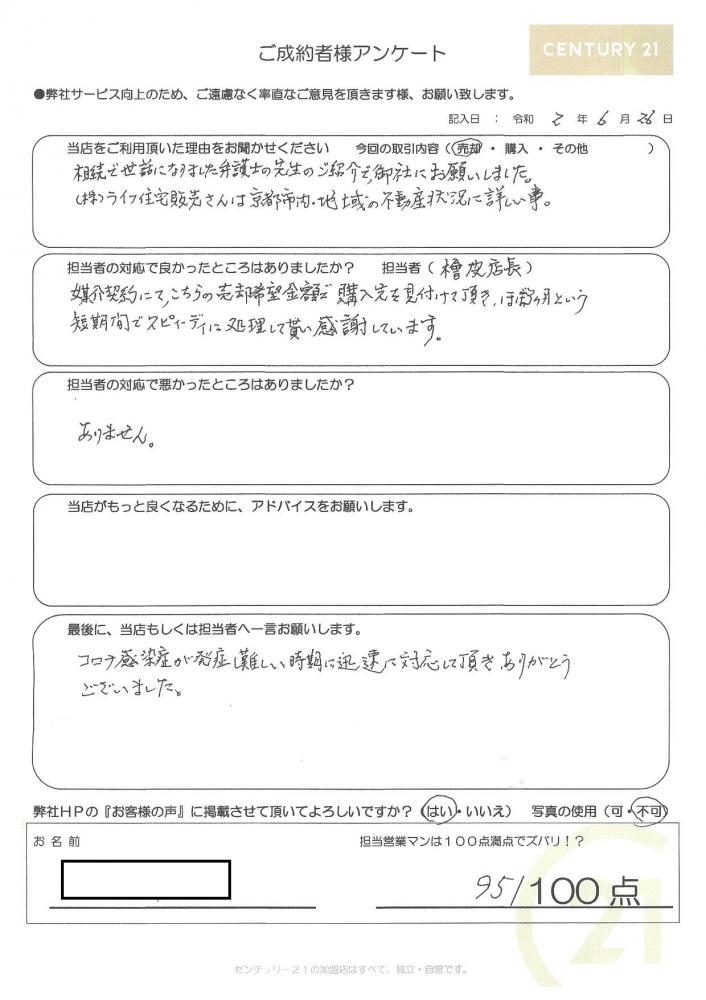 ご成約者様アンケート
CENTURY 21
●弊社サービス向上のため、ご遠慮なく率直なご意見を頂きます様、お願い致します。
記入日 : 令和 2 年 6 月 26 日
当店をご利用頂いた理由をお聞かせください 今回の取引内容(売却・購入・その他 )
相続で世話になりました弁護士の先生のご紹介で、御社にお願いしました。
(株)ライフ住宅販売さんは京都市内・地域の不動産状況に詳しい事。
担当者の対応で良かったところはありましたか? 担当者(檜皮店長)
媒介契約にて、こちらの売却希望金額で購入先を見付けて頂き、ほぼ ヶ月という
短期間でスピィーディに処理して貰い感謝しています。
担当者の対応で悪かったところはありましたか?
ありません。
当店がもっと良くなるために、アドバイスをお願いします。
最後に、当店もしくは担当者へ一言お願いします。
コロナ感染症が発症し難しい時期に迅速に対応して頂きありがとう
ございました。
弊社HPの『お客様の声』に掲載させて頂いてよろしいですか?(はい・いいえ) 写真の使用(可・不可)
お名前 担当営業マンは100点満点でズバリ!?
95/100点
21
センチュリー21の加盟店はすべて、独立・自営です。